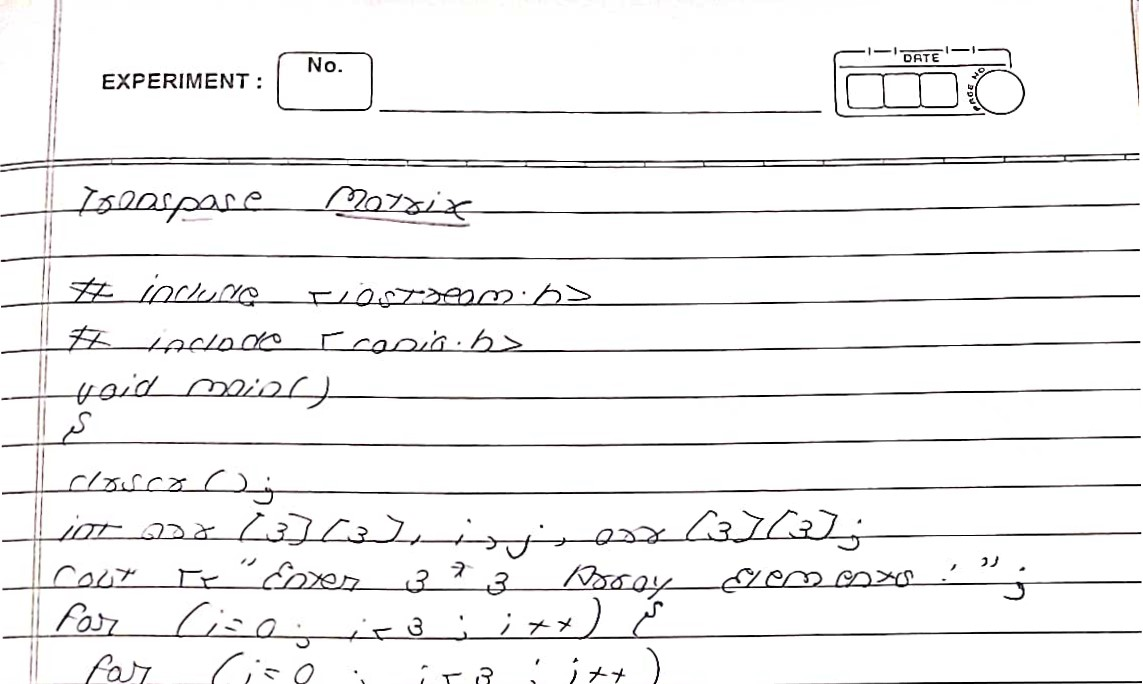 EXPERIMENT : No.
DATE
PAGE NO
Transpose Matrix
# include <iostream.h>
# include <conio.h>
void main()
{
clrscr();
int arr [3][3], i, j, arr [3][3];
cout << "Enter 3 * 3 Array Elements : ";
for (i=0; i<3; i++) {
for (j=0; j<3; j++)